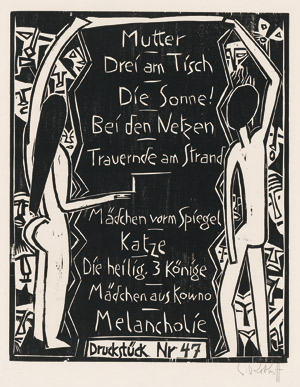 Mutter
Drei am Tisch
Die Sonne!
Bei den Netzen
Trauernde am Strand
Mädchen vorm Spiegel
Katze
Die heilig. 3 Könige
Mädchen aus Kowno
Melancholie
Druckstück Nr 47